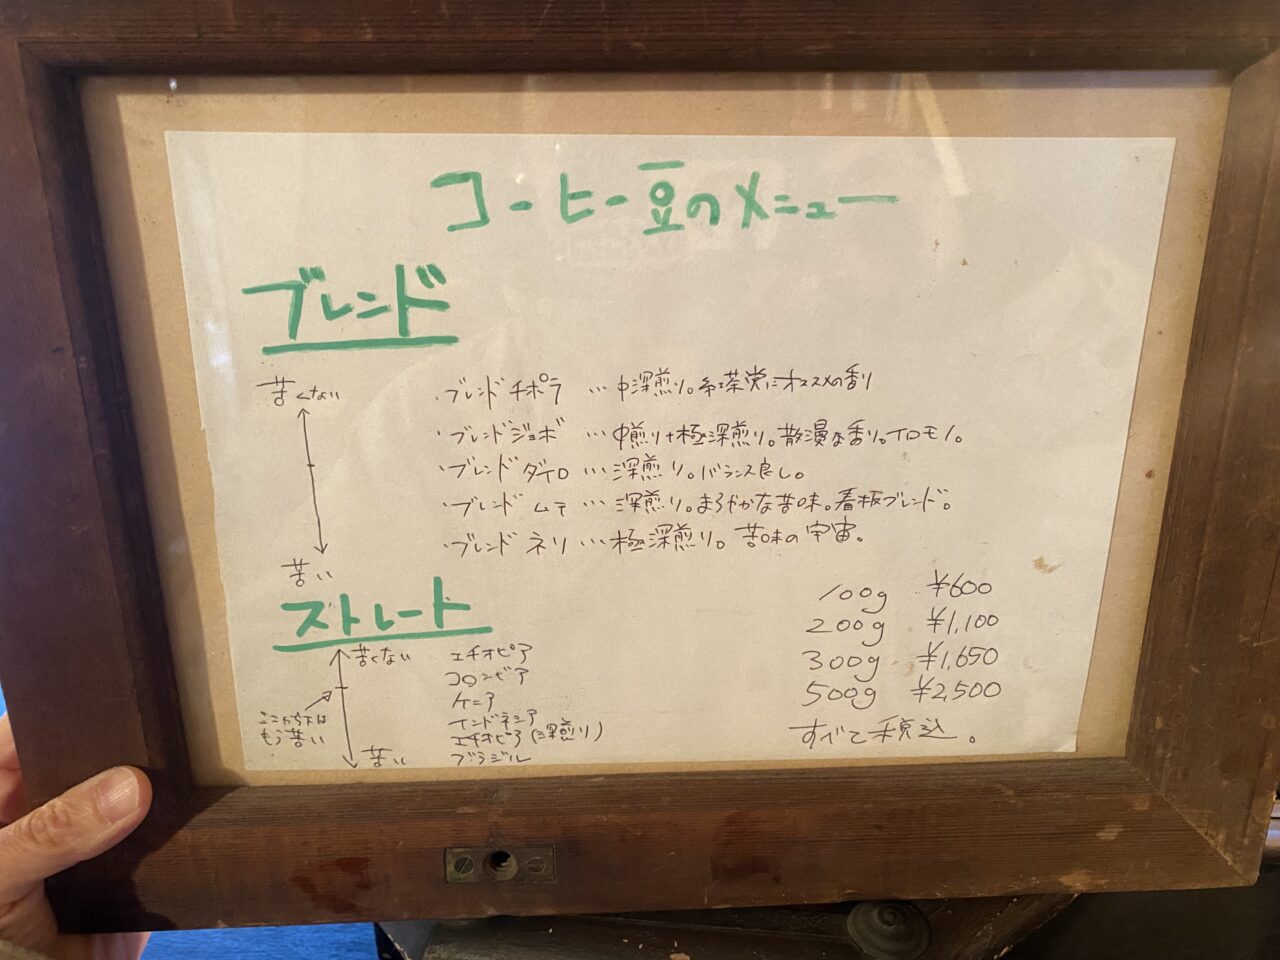 コーヒー豆のメニュー
ブレンド
苦くない
・ブレンド チポラ …中深煎り。紅茶党にオススメの香り
・ブレンド ジョボ …中煎り+極深煎り。散漫な香り。イロモノ。
・ブレンド ダイロ …深煎り。バランス良し。
・ブレンド ムテ …深煎り。まろやかな苦味。看板ブレンド。
・ブレンド ネリ …極深煎り。苦味の宇宙。
苦い
ストレート
苦くない
ここから下は
もう苦い
苦い
エチオピア
コロンビア
ケニア
インドネシア
エチオピア(深煎り)
ブラジル
100g ¥600
200g ¥1,100
300g ¥1,650
500g ¥2,500
すべて税込。